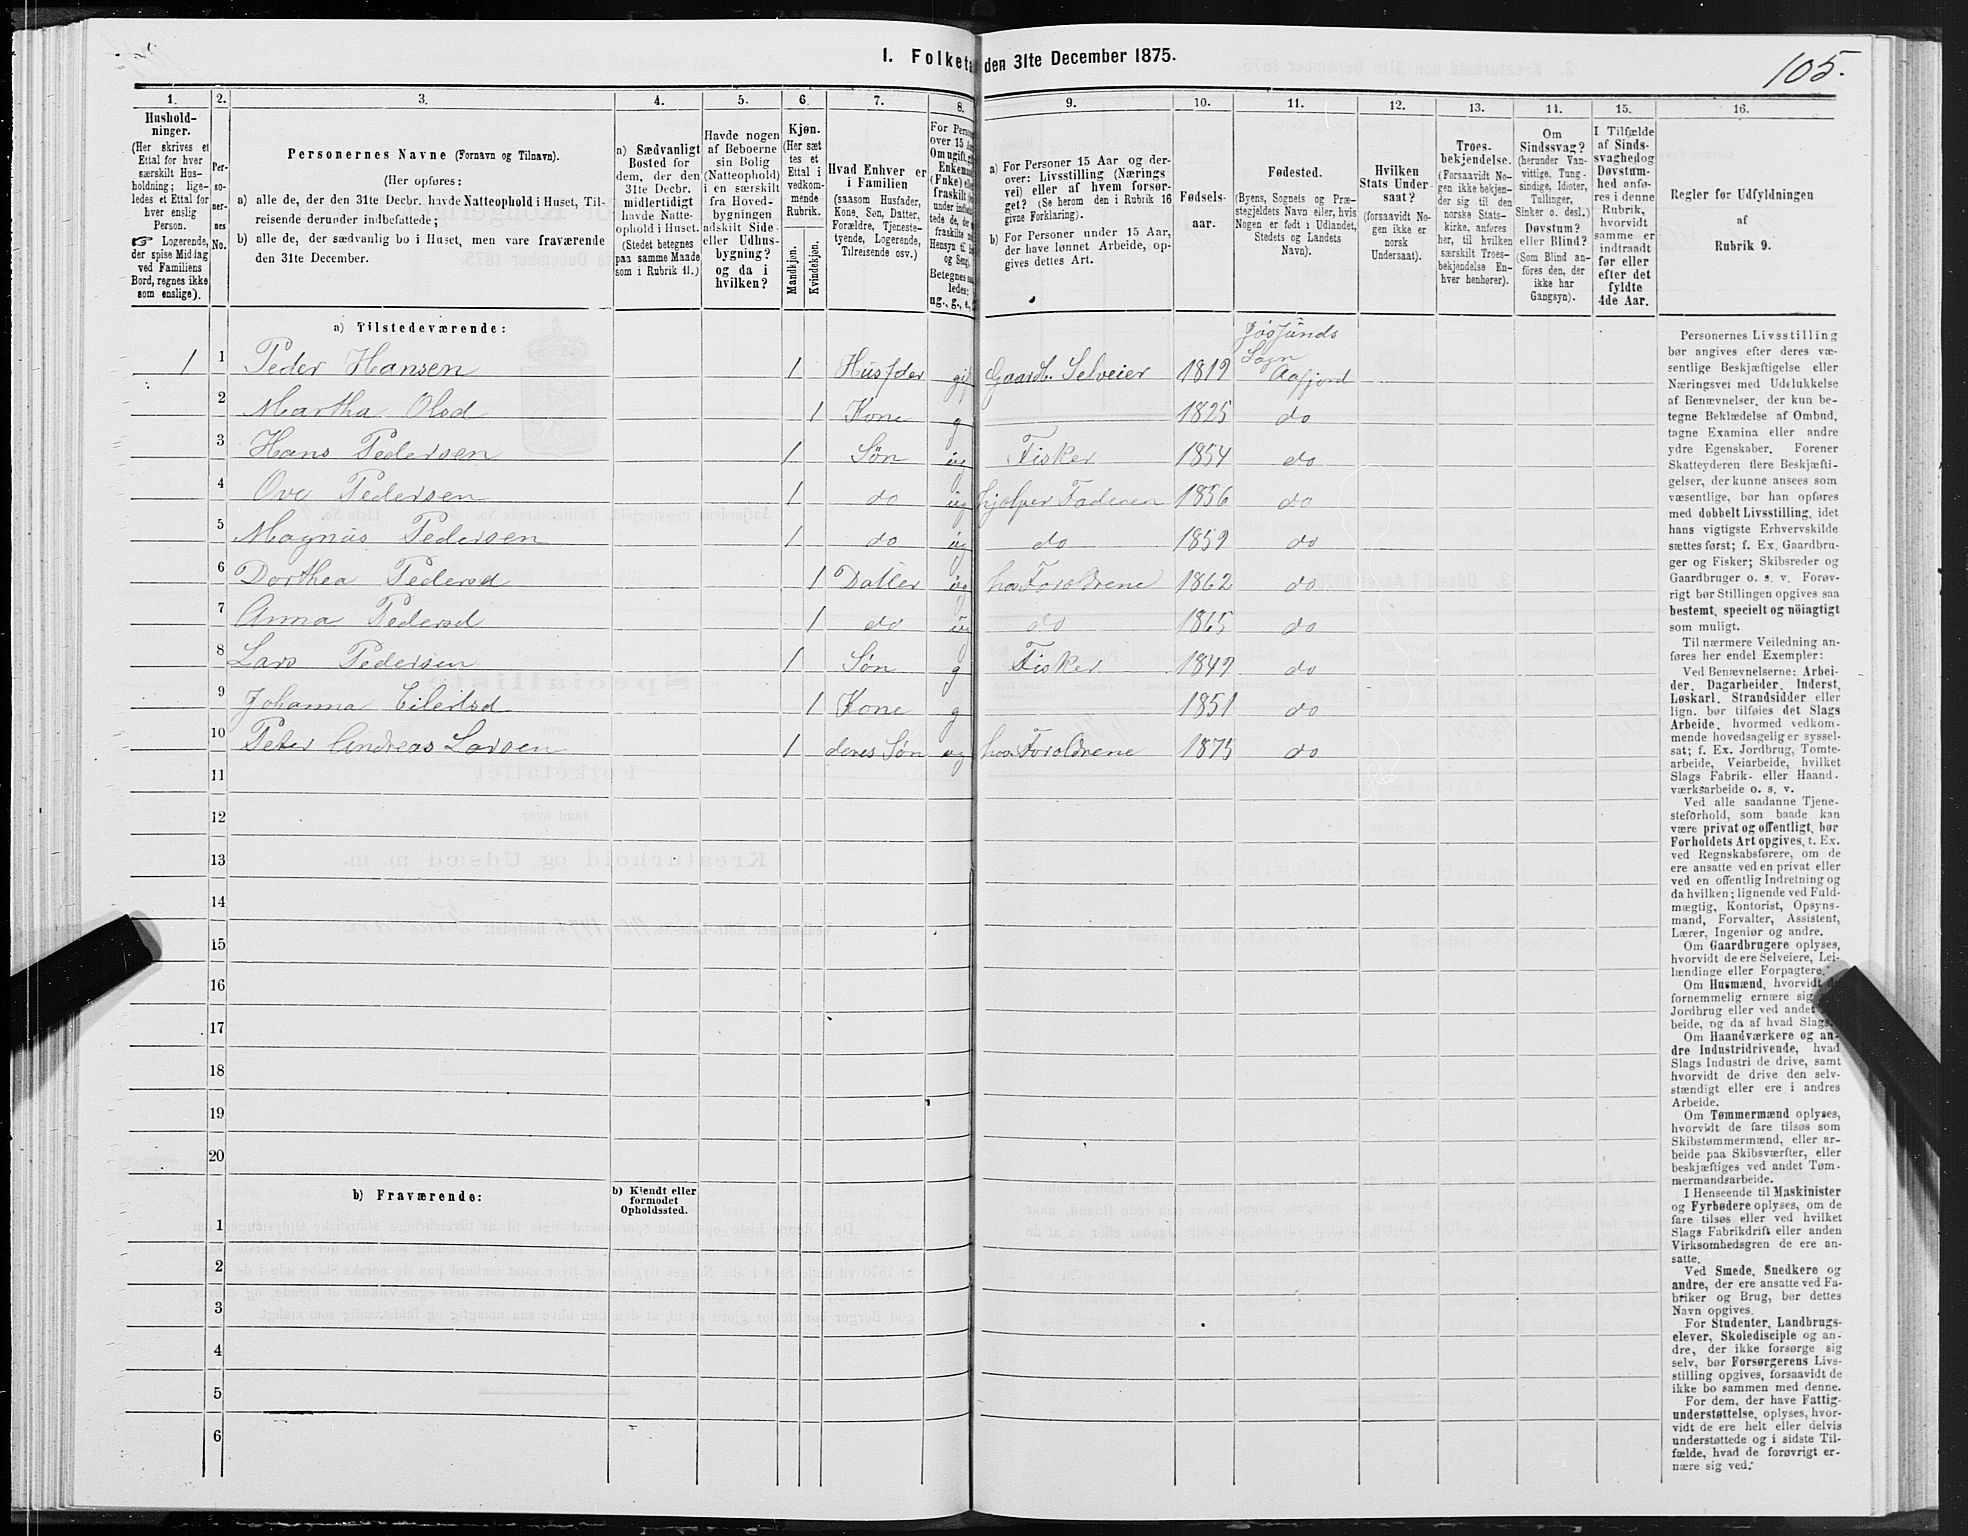 105.
I. Folketæ
den 31te December 1875.
1.
2.
3.
4.
5.
6.
7.
8.
9.
10.
11.
12.
13.
14.
15.
16.
Hushold-
ninger.
(Her skrives et
Ettal for hver
særskilt Hus-
holdning; lige-
ledes et Ettal for
hver enslig
Person.
☞ Logerende,
der spise Middag
ved Familiens
Bord, regnes ikke
som enslige).
Per-
so-
ner-
nes
No.
Personernes Navne (Fornavn og Tilnavn).
(Her opføres:
a) alle de, der den 31te Decbr. havde Natteophold i Huset, Til-
reisende derunder indbefattede;
b) alle de, der sædvanlig bo i Huset, men vare fraværende
den 31te December.
a) Sædvanligt
Bosted for
dem, der den
31te Decbr.
midlertidigt
havde Natte-
ophold i Huset.
(Stedet betegnes
paa samme Maade
som i Rubrik 11.)
Havde nogen
af Beboerne
sin Bolig
(Natteophold)
i en særskilt
fra Hoved-
bygningen
adskilt Side-
eller Udhus-
bygning?
og da i
hvilken?
Kjøn.
(Her sæt
tes et
Ettal i
vedkom-
mende
Rubrik.
Mandkjøn.
Kvindekjøn.
Hvad Enhver er
i Familien
(saasom Husfader,
Kone, Søn, Datter,
Forældre, Tjeneste-
tyende, Logerende,
Tilreisende osv.)
For Person
over 15 Aa
Om ugift, gi
Enkeman
(Enke) elle
fraskilt
Betegnes saa
ledes:
ug., g., e.,
a) For Personer 15 Aar og der-
over: Livsstilling (Nærings
vei) eller af hvem forsør-
get? (Se herom den i Rubrik 16
givne Forklaring).
b) For Personer under 15 Aar,
der have lønnet Arbeide, op-
gives dettes Art.
Fødsels-
aar.
Fødested.
(Byens, Sognets og Præ-
stegjeldets Navn eller, hvis
Nogen er født i Udlandet,
Stedets og Landets
Navn).
Hvilken
Stats Under-
saat?
(forsaavidt No-
gen ikke er
norsk
Undersaat).
Troes-
bekjendelse.
(Forsaavidt No-
gen ikke bekjen-
der sig til den
norske Stats-
kirke, anføres
her, til hvilken
særskilt Troes-
bekjendelse En-
hver henhører).
Om
Sindssvag?
(herunder Van-
vittige, Tung-
sindige, Idioter,
Tullinger,
Sinker o. desl.)
Døvstum?
eller Blind?
(Som Blind an-
føres den, der
ikke har
Gangsyn).
I Tilfælde
af Sinds-
svaghed og
Døvstum-
hed anfø-
res i denne
Rubrik,
hvorvidt
samme er
indtraadt
før eller
efter det
fyldte
4de Aar.
Regler for Udfyldningen
af
Rubrik 9.
a) Tilstedeværende:
Jøssunds
Sogn
1 1 Peder Hansen 1 Husfder gif Gaardb. Selveier 1819 Aafjord
2 Martha Olsd 1 Kone g 1825 do
3 Hans Pedersen 1 Søn ug Fisker 1854 do
4 Ove Pedersen 1 do ug hjelper Faderen 1856 do
5 Magnus Pedersen 1 do ug do 1859 do
6 Dorthea Pedersd 1 Datter ug hos Foroldrene 1862 do
7 Anna Pedersd 1 do ug do 1865 do
8 Lars Pedersen 1 Søn g Fisker 1849 do
9 Johanna Eilertsd 1 Kone g 1851 do
10 Peter Andreas Larsen 1 deres Søn ug hos Foroldrene 1875 do
11
12
13
14
15
16
17
18
19
20
b) Fraværende:
b) Kjendt eller
formodet
Opholdssted.
1
2
3
4
5
6
Personernes Livsstilling
bør angives efter deres væ-
sentlige Beskjæftigelse eller
Næringsvei med Udelukkelse
af Benævnelser, der kun be-
tegne Beklædelse af Ombud,
tagne Examina eller andre
ydre Egenskaber. Forener
Skatteyderen flere Beskjæfti-
gelser, der kunne ansees som
væsentlige, bør han opføres
med dobbelt Livsstilling, idet
hans vigtigste Erhvervskilde
sættes først; f. Ex. Gaardbru-
ger og Fisker; Skibsreder og
Gaardbruger o. s. v. Forøv-
rigt bør Stillingen opgives saa
bestemt, specielt og nöiagtigt
som muligt.
Til nærmere Veiledning an-
føres her endel Exempler:
Ved Benævnelserne: Arbei-
der, Dagarbeider, Inderst,
Løskarl, Strandsidder eller
lign. bør tilføies det Slags
Arbeide, hvormed vedkom-
mende hovedsagelig er syssel-
sat; f. Ex. Jordbrug, Tomte-
arbeide, Veiarbeide, hvilket
Slags Fabrik- eller Haand-
værksarbeide o. s. v.
Ved alle saadanne Tjene-
steforhold, som baade kan
være privat og offentligt, bør
Forholdets Art opgives, t. Ex.
ved Regnskabsførere, om de
ere ansatte ved en privat eller
ved en offentlig Indretning og
da hvilken; lignende ved Fuld-
mægtig, Kontorist, Opsyns-
mand, Forvalter, Assistent,
Lærer, Ingeniør og andre.
Om Gaardbrugere oplyses,
hvorvidt de ere Selveiere, Lei-
lændinge eller Forpagtere.
Om Husmænd, hvorvidt de
fornemmelig ernære sig
Jordbrug eller ved andet
beide, og da af hvad Slags.
Om Haandværkere og an-
dre Industridrivende, hvad
Slags Industri de drive, samt
hvorvidt de drive den selv-
stændigt eller ere i andres
Arbeide.
Om Tømmermænd oplyses,
hvorvidt de fare tilsøs som
Skibstømmermænd, eller ar-
beide paa Skibsværfter, eller
beskjæftiges ved andet Tøm-
mermandsarbeide.
I Henseende til Maskinister
og Fyrbødere oplyses, om de
fare tilsøs eller ved hvilket
Slags Fabrikdrift eller anden
Virksomhedsgren de ere an-
satte.
Ved Smede, Snedkere og
andre, der ere ansatte ved Fa-
briker og Brug, bør dettes
Navn opgives.
For Studenter, Landbrugs-
elever, Skoledisciple og an-
dre, der ikke forsørge sig
selv, bør Forsørgerens Livs-
stilling opgives, forsaavidt de
ikke bo sammen med denne.
For dem, der have Fattig-
understøttelse, oplyses, hvor-
vidt de ere helt eller delvis
understøttede og i sidste Til-
fælde, hvad de forøvrigt er-
nære sig ved.